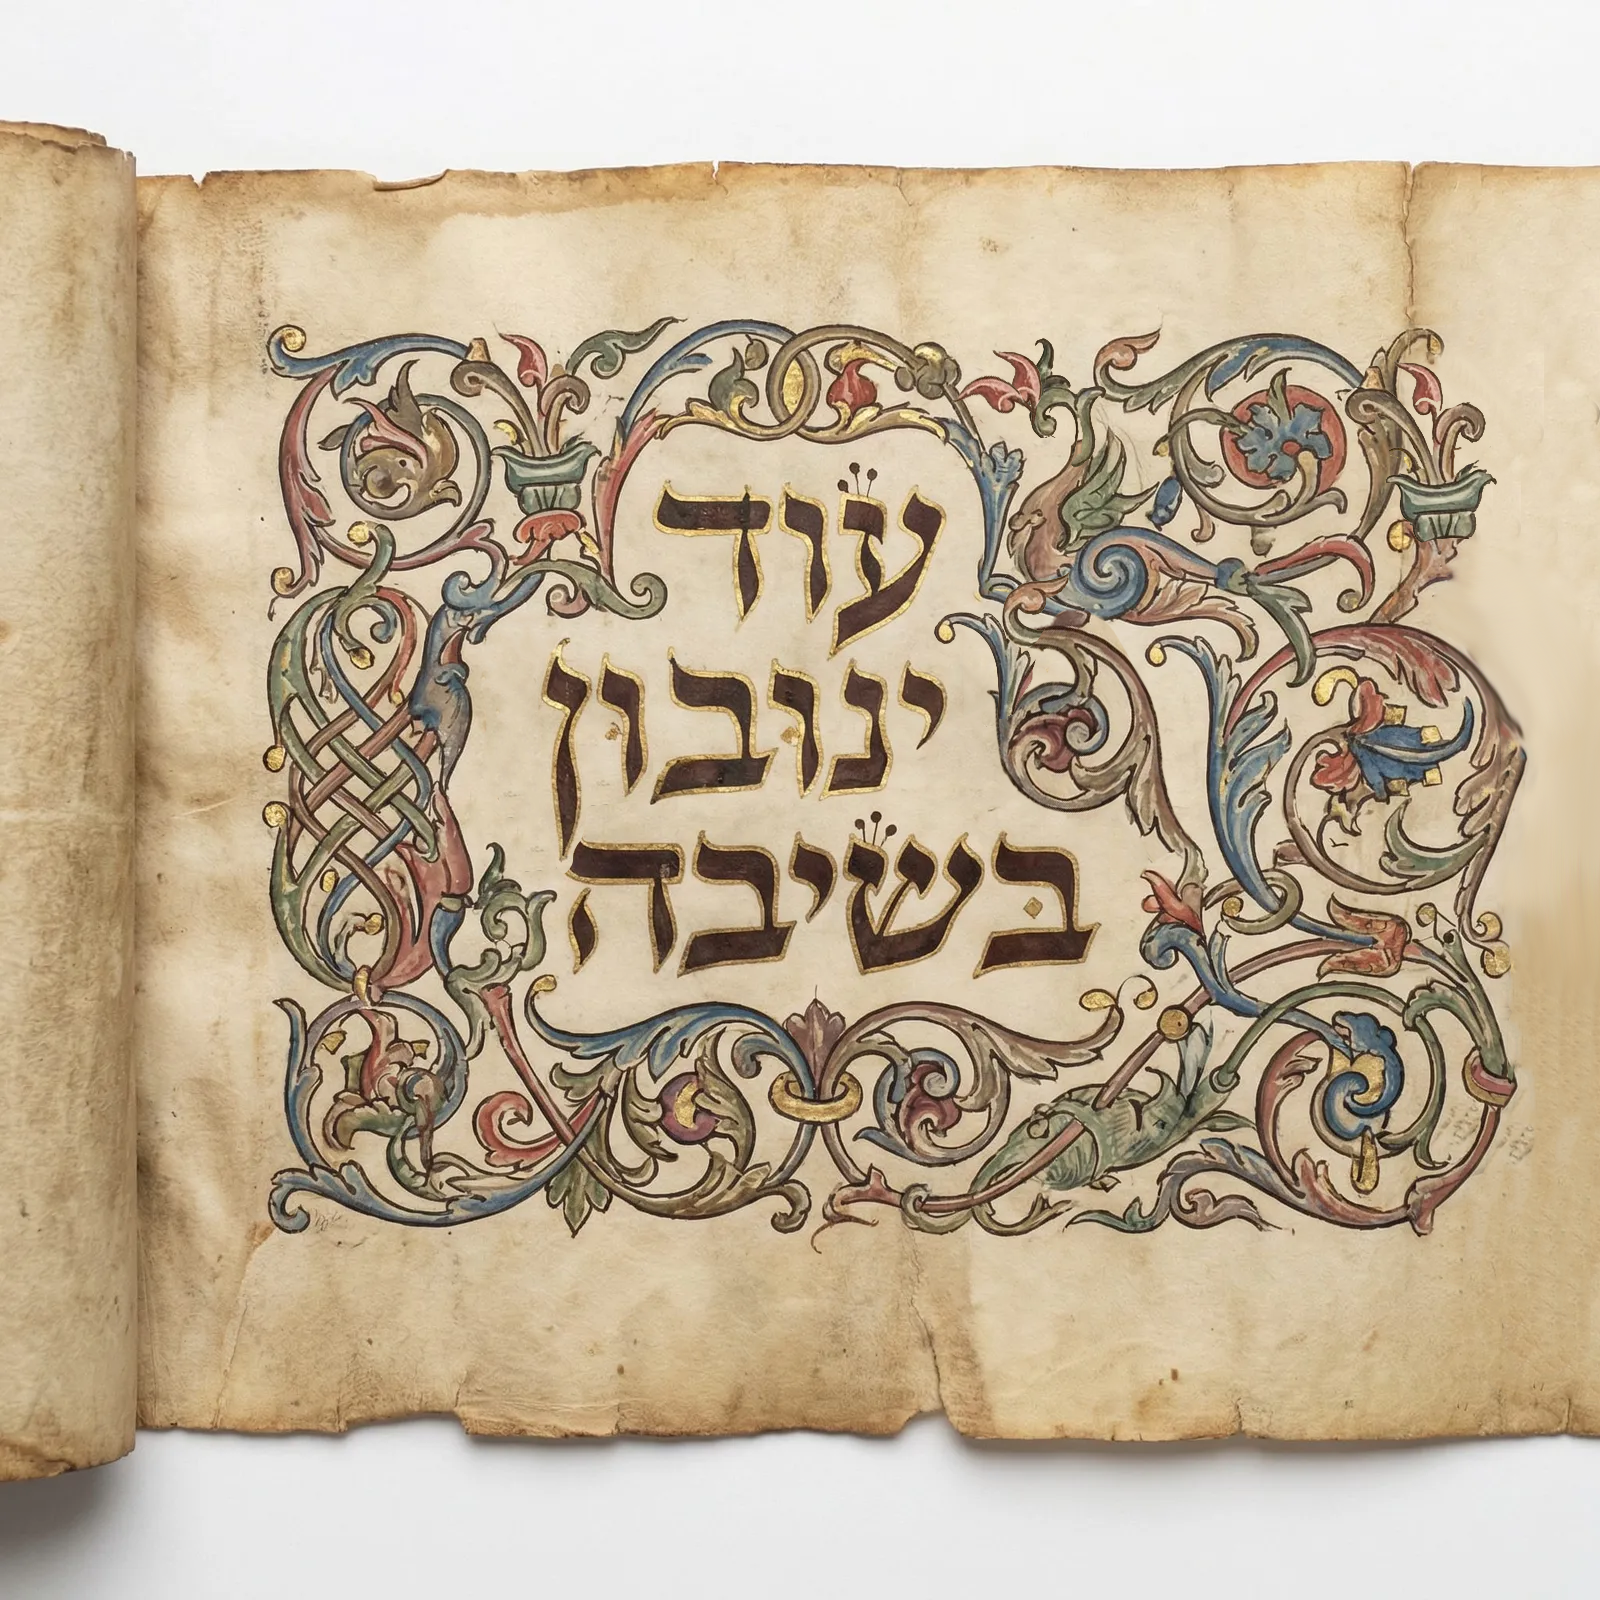 עוד
ינובון
בשיבה